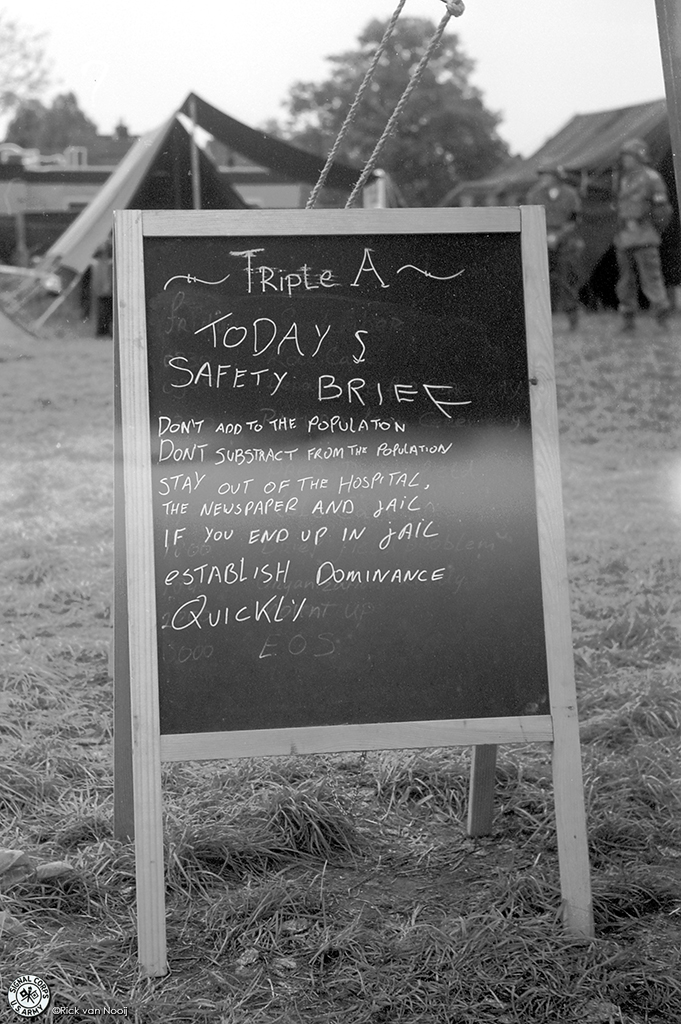 ~ Triple A ~
TODAY S
SAFETY BRIEF
DON'T ADD TO THE POPULATON
DON'T SUBSTRACT FROM THE POPULATION
STAY OUT OF THE HOSPITAL,
THE NEWSPAPER AND JAIL
IF YOU END UP IN JAIL
ESTABLISH DOMINANCE
QUICKLY
EOS
SIGNAL CORPS
U.S. ARMY
©Rick van Nooij